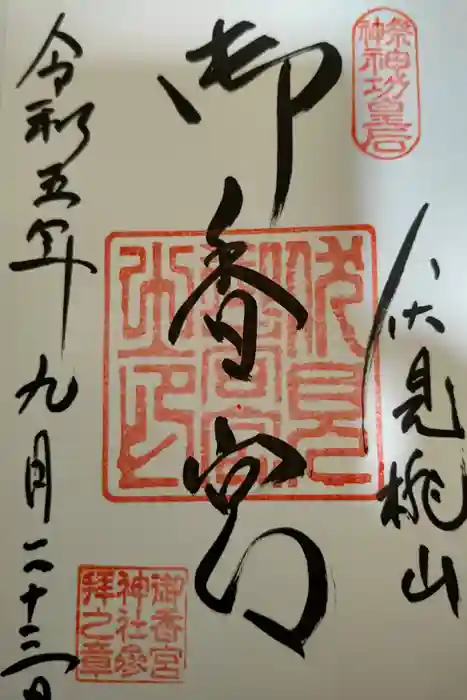 祭神
神功皇后
伏見桃山
御香宮
令和五年九月二十三日
御香宮
神社参
拝之章